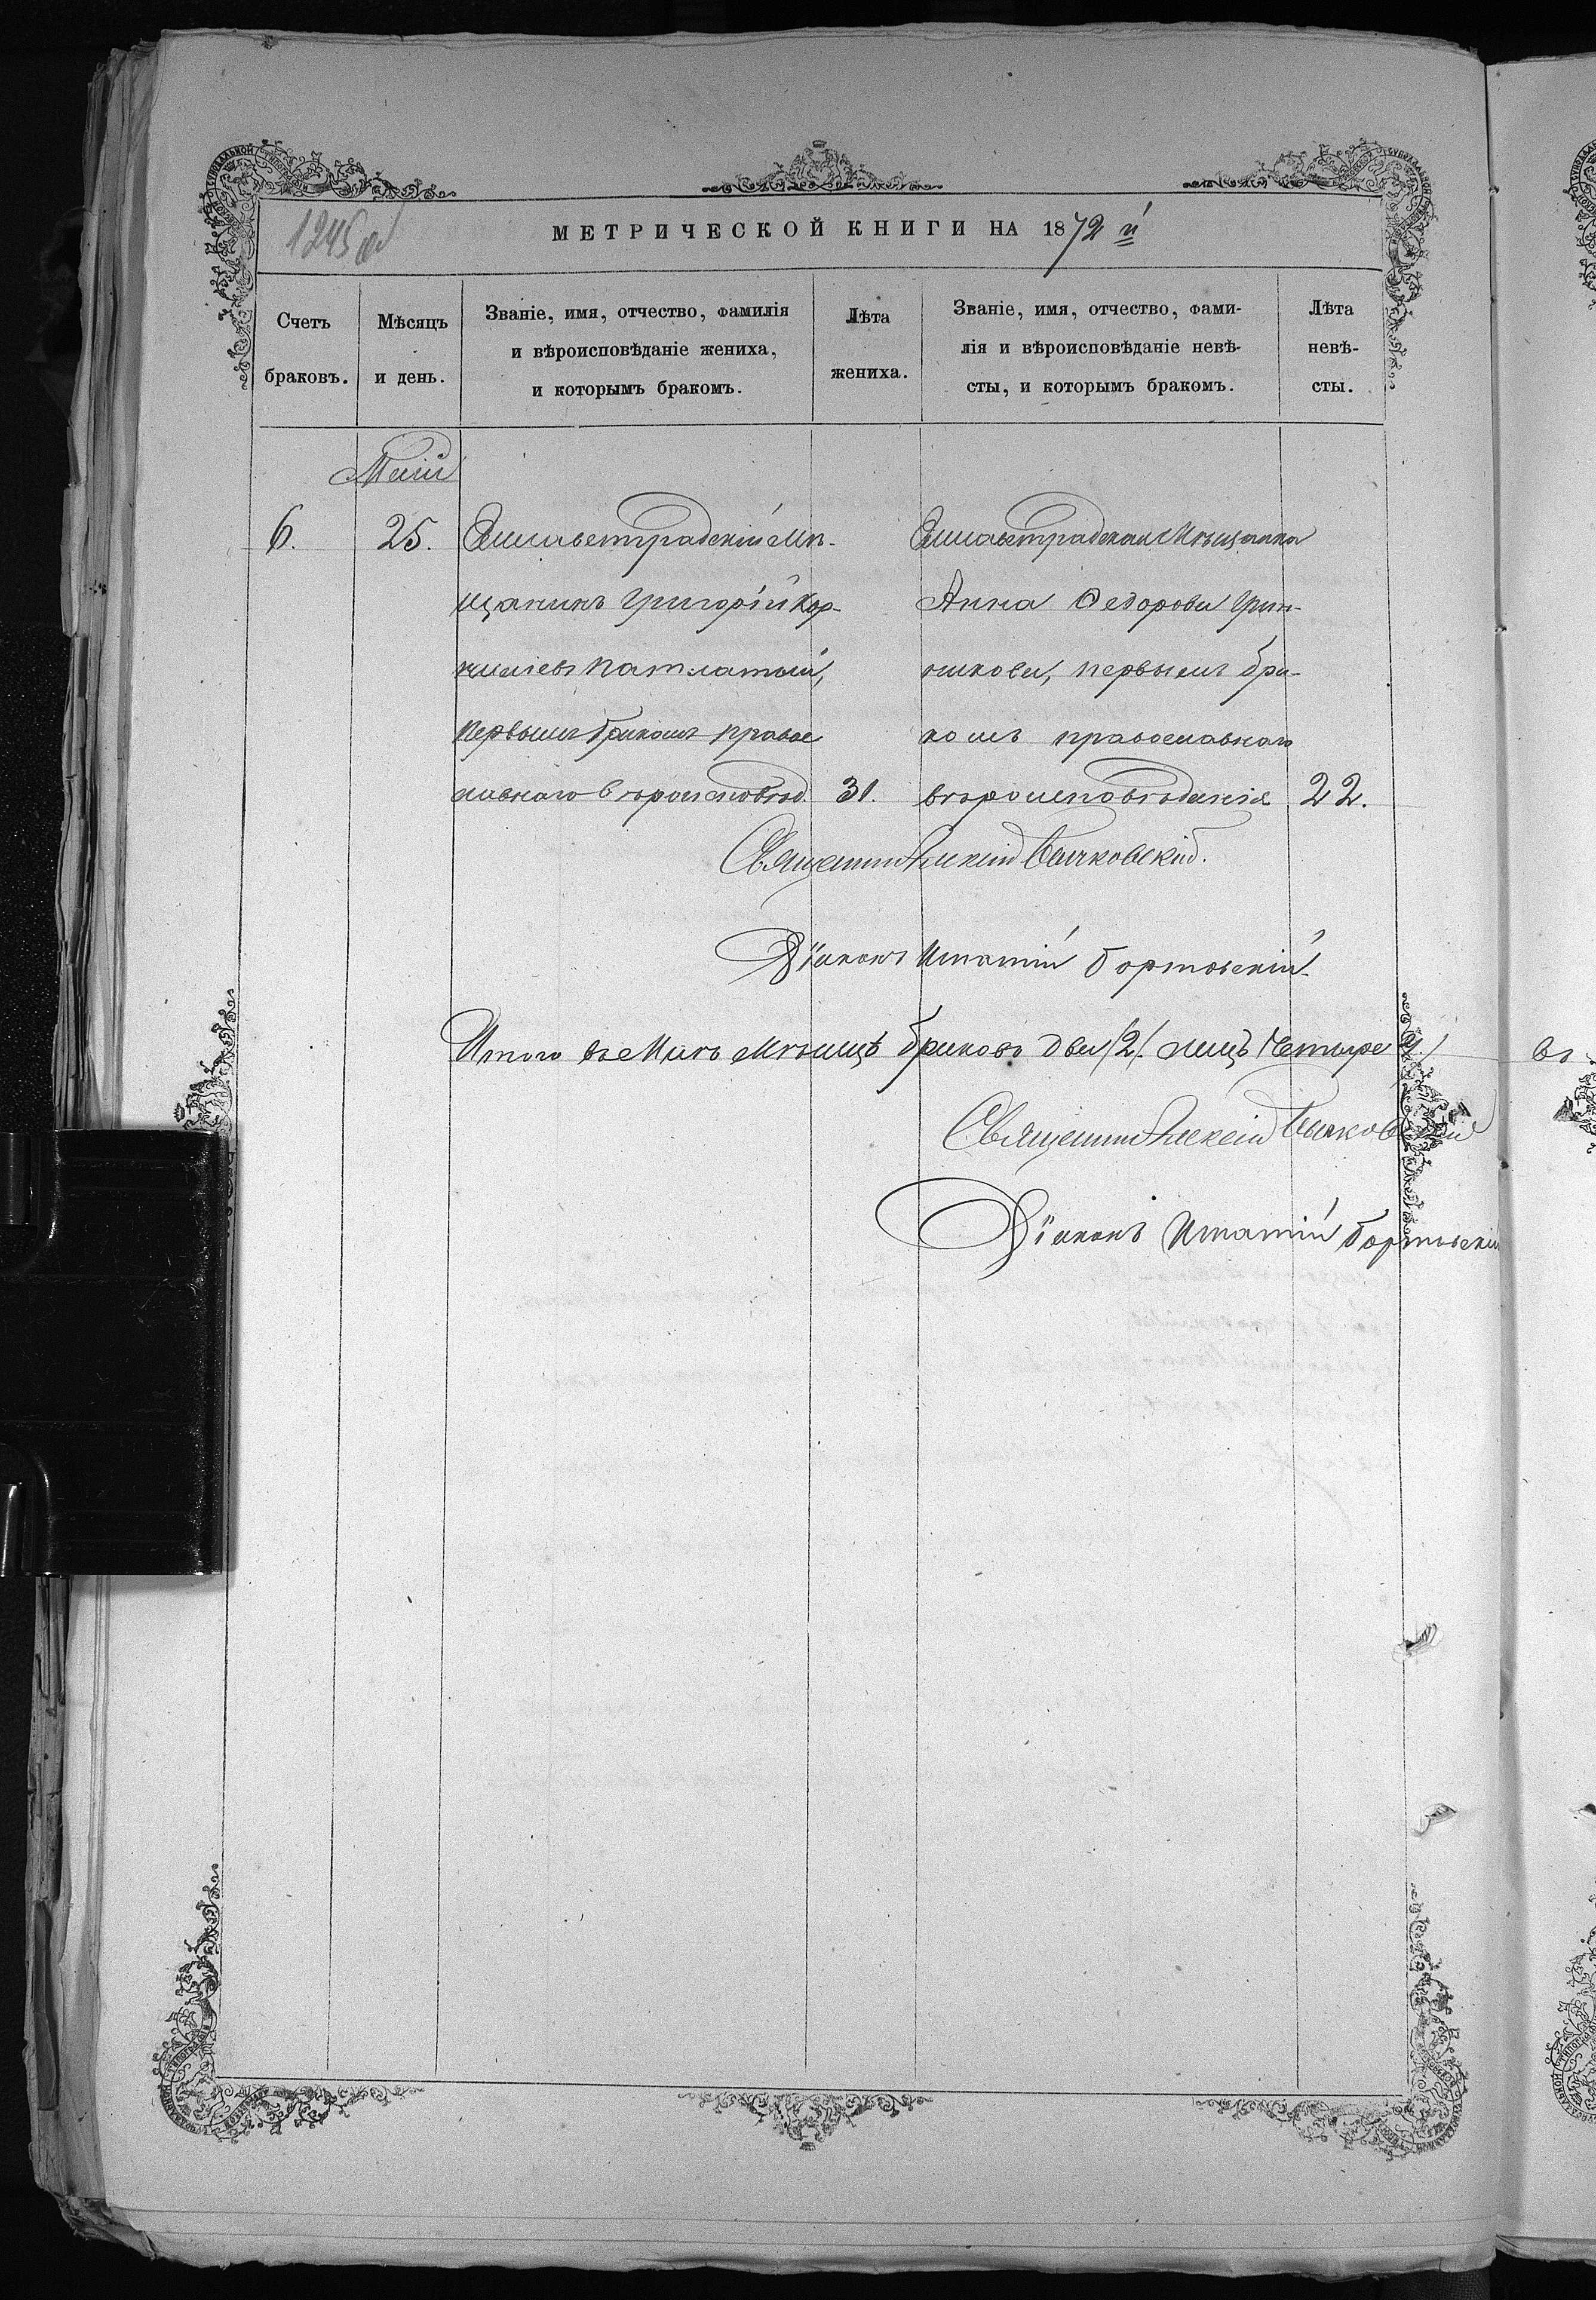 1245 об
МЕТРИЧЕСКОЙ КНИГИ НА 1872 й
Счетъ браковъ.
Мѣсяцъ и день.
Званіе, имя, отчество, фамилія
и вѣроисповѣданіе жениха,
и которымъ бракомъ.
Лѣта
жениха.
Званіе, имя, отчество, фами-
лія и вѣроисповѣданіе невѣ-
сты, и которымъ бракомъ.
Лѣта
невѣ-
сты.
Маій
6.
25.
Елисаветградскій Мѣ-
щанинъ Григорій Кор-
нилievъ Патлатый,
первымъ бракомъ правос
лавнаго вѣроисповѣд.
31.
Елисаветградская Мѣщанка
Анна Ѳедорова Грин-
никова, первымъ бра-
комъ православнаго
вѣроисповѣданія
22.
Священник Алексій
Діаконъ Игнатій Бортовскій.
Итого въ Маѣ Мѣсяцѣ браковъ два /2/. лицъ Четыре /4./
въ
Священник Алексій
Діаконъ Игнатій Бортовскій